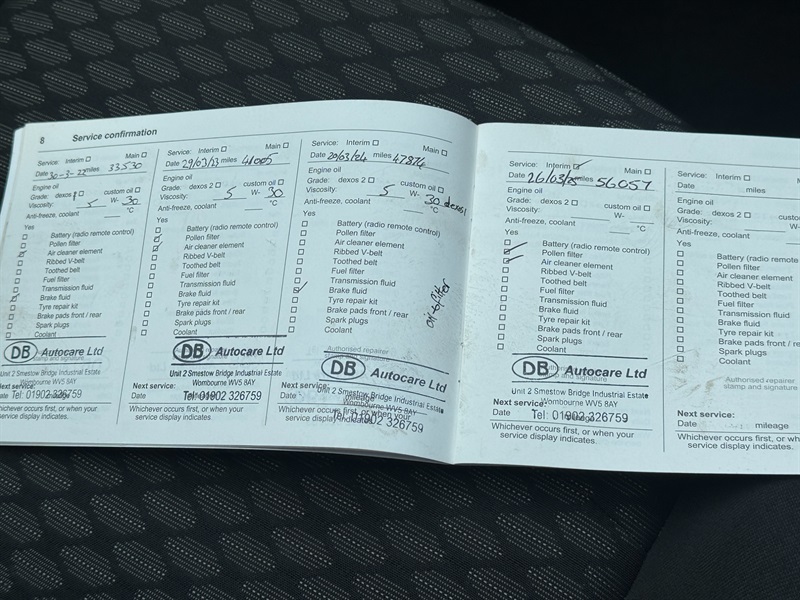 8 Service confirmation
Service: Interim ☐ Main ☐
Date 30-3-22 miles 33530
Engine oil
Grade: dexos custom oil ☐
Viscosity: 5 W- 30
Anti-freeze, coolant °C
Yes
☐ Battery (radio remote control)
☐ Pollen filter
☑ Air cleaner element
☐ Ribbed V-belt
☐ Toothed belt
☐ Fuel filter
☐ Transmission fluid
☑ Brake fluid
☐ Tyre repair kit
☐ Brake pads front / rear
☐ Spark plugs
☐ Coolant
DB Autocare Ltd
stamp and signature
Unit 2 Smestow Bridge Industrial Estate
Wombourne WV5 8AY
Next service:
Tel: 01902 326759
Date
Whichever occurs first, or when your
service display indicates.
Service: Interim ☐ Main ☐
Date 29/03/23 miles 41005
Engine oil
Grade: dexos 2 ☐ custom oil ☐
Viscosity: 5 W- 30
Anti-freeze, coolant °C
Yes
☐ Battery (radio remote control)
☑ Pollen filter
☑ Air cleaner element
☐ Ribbed V-belt
☐ Toothed belt
☐ Fuel filter
☐ Transmission fluid
☐ Brake fluid
☐ Tyre repair kit
☐ Brake pads front / rear
☐ Spark plugs
☐ Coolant
DB Autocare Ltd
Unit 2 Smestow Bridge Industrial Estate
Wombourne WV5 8AY
Next service:
Date Tel: 01902 326759
Whichever occurs first, or when your
service display indicates.
Service: Interim ☐ Main ☐
Date 20/03/24 miles 47874
Engine oil
Grade: dexos 2 ☐ custom oil ☐
Viscosity: 5 W- 30 dexos1
Anti-freeze, coolant °C
Yes
☐ Battery (radio remote control)
☐ Pollen filter
☐ Air cleaner element
☐ Ribbed V-belt
☐ Toothed belt
☐ Fuel filter
☐ Transmission fluid
☑ Brake fluid
☐ Tyre repair kit
☐ Brake pads front / rear
☐ Spark plugs
☐ Coolant
oil+filter
Authorised repairer
DB Autocare Ltd
Unit 2 Smestow Bridge Industrial Estate
Next service:
mileage
Wombourne WV5 8AY
Date
Tel: 01902 326759
Whichever occurs first, or when your
service display indicates.
Service: Interim ☑ Main ☐
Date 26/03/25 miles 56057
Engine oil
Grade: dexos 2 ☐ custom oil ☐
Viscosity: W-
Anti-freeze, coolant °C
Yes
☐ Battery (radio remote control)
☑ Pollen filter
☑ Air cleaner element
☐ Ribbed V-belt
☐ Toothed belt
☐ Fuel filter
☐ Transmission fluid
☐ Brake fluid
☐ Tyre repair kit
☐ Brake pads front / rear
☐ Spark plugs
☐ Coolant
DB Autocare Ltd
and signature
Unit 2 Smestow Bridge Industrial Estate
Next service: Wombourne WV5 8AY
Date Tel: 01902 326759
Whichever occurs first, or when your
service display indicates.
Service: Interim ☐
Date miles
Engine oil
Grade: dexos 2 ☐
Viscosity:
Anti-freeze, coolant
Yes
☐ Battery (radio remote
☐ Pollen filter
☐ Air cleaner element
☐ Ribbed V-belt
☐ Toothed belt
☐ Fuel filter
☐ Transmission fluid
☐ Brake fluid
☐ Tyre repair kit
☐ Brake pads front / r
☐ Spark plugs
☐ Coolant
Authorised repairer
stamp and signature
Next service:
Date mileage
Whichever occurs first, or wh
service display indicates.